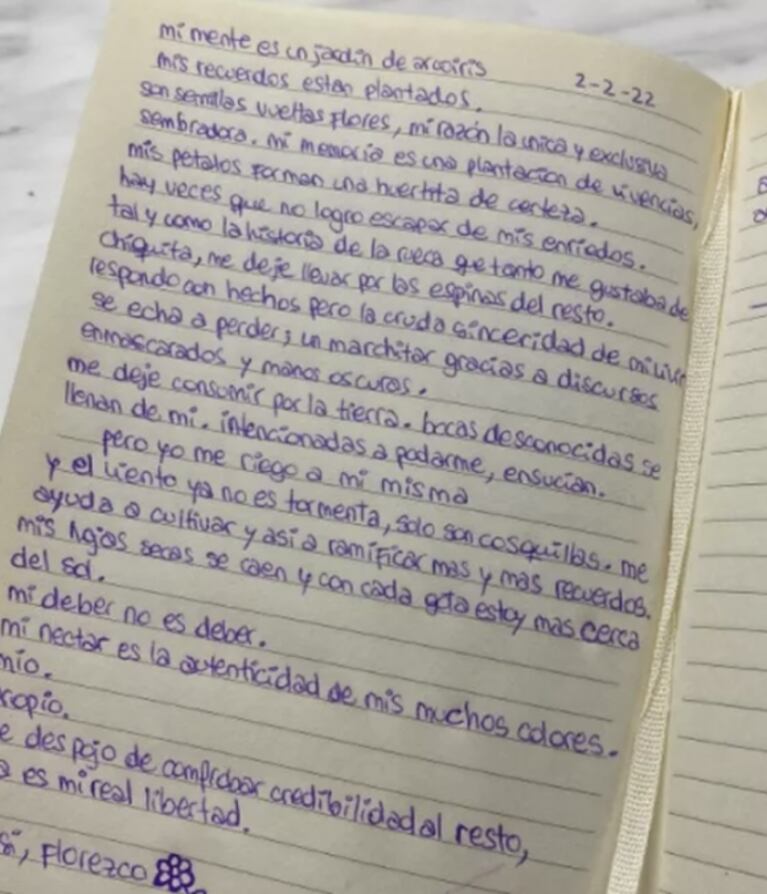 mi mente es un jardín de arcoiris
2-2-22
mis recuerdos estan plantados.
son semillas vueltas flores, mi razón la unica y exclusiva
sembradora. mi memoria es una plantación de vivencias,
mis petalos forman una huertita de certeza.
hay veces que no logro escapar de mis enriedos.
tal y como la historia de la rueca que tanto me gustaba de
chiquita, me deje llevar por las espinas del resto.
respondo con hechos pero la cruda sinceridad de mi
se echa a perder; un marchitar gracias a discursos
enmascarados y manos oscuras.
me deje consumir por la tierra. bocas desconocidas se
llenan de mi. intencionadas a podarme, ensucian.
pero yo me riego a mi misma
y el viento ya no es tormenta, solo son cosquillas. me
ayuda a cultivar y asi a ramificar mas y mas recuerdos.
mis hojas secas se caen y con cada gota estoy mas cerca
del sol.
mi deber no es deber.
mi nectar es la autenticidad de mis muchos colores.
mío.
ropio.
e despojo de comprobar credibilidad al resto,
a es mi real libertad.
sí, florezco